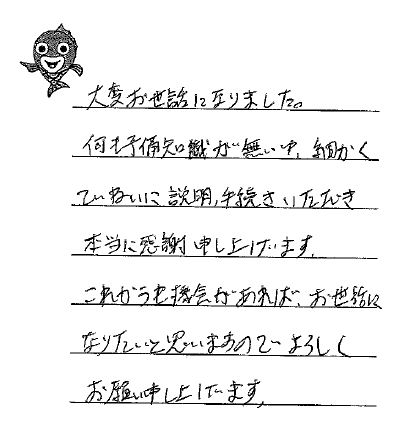 大変お世話になりました。
何も予備知識が無い中、細かく
ていねいに説明、手続きいただき
本当に感謝申し上げます。
これからも機会があれば、お世話に
なりたいと思いますのでよろしく
お願い申し上げます。